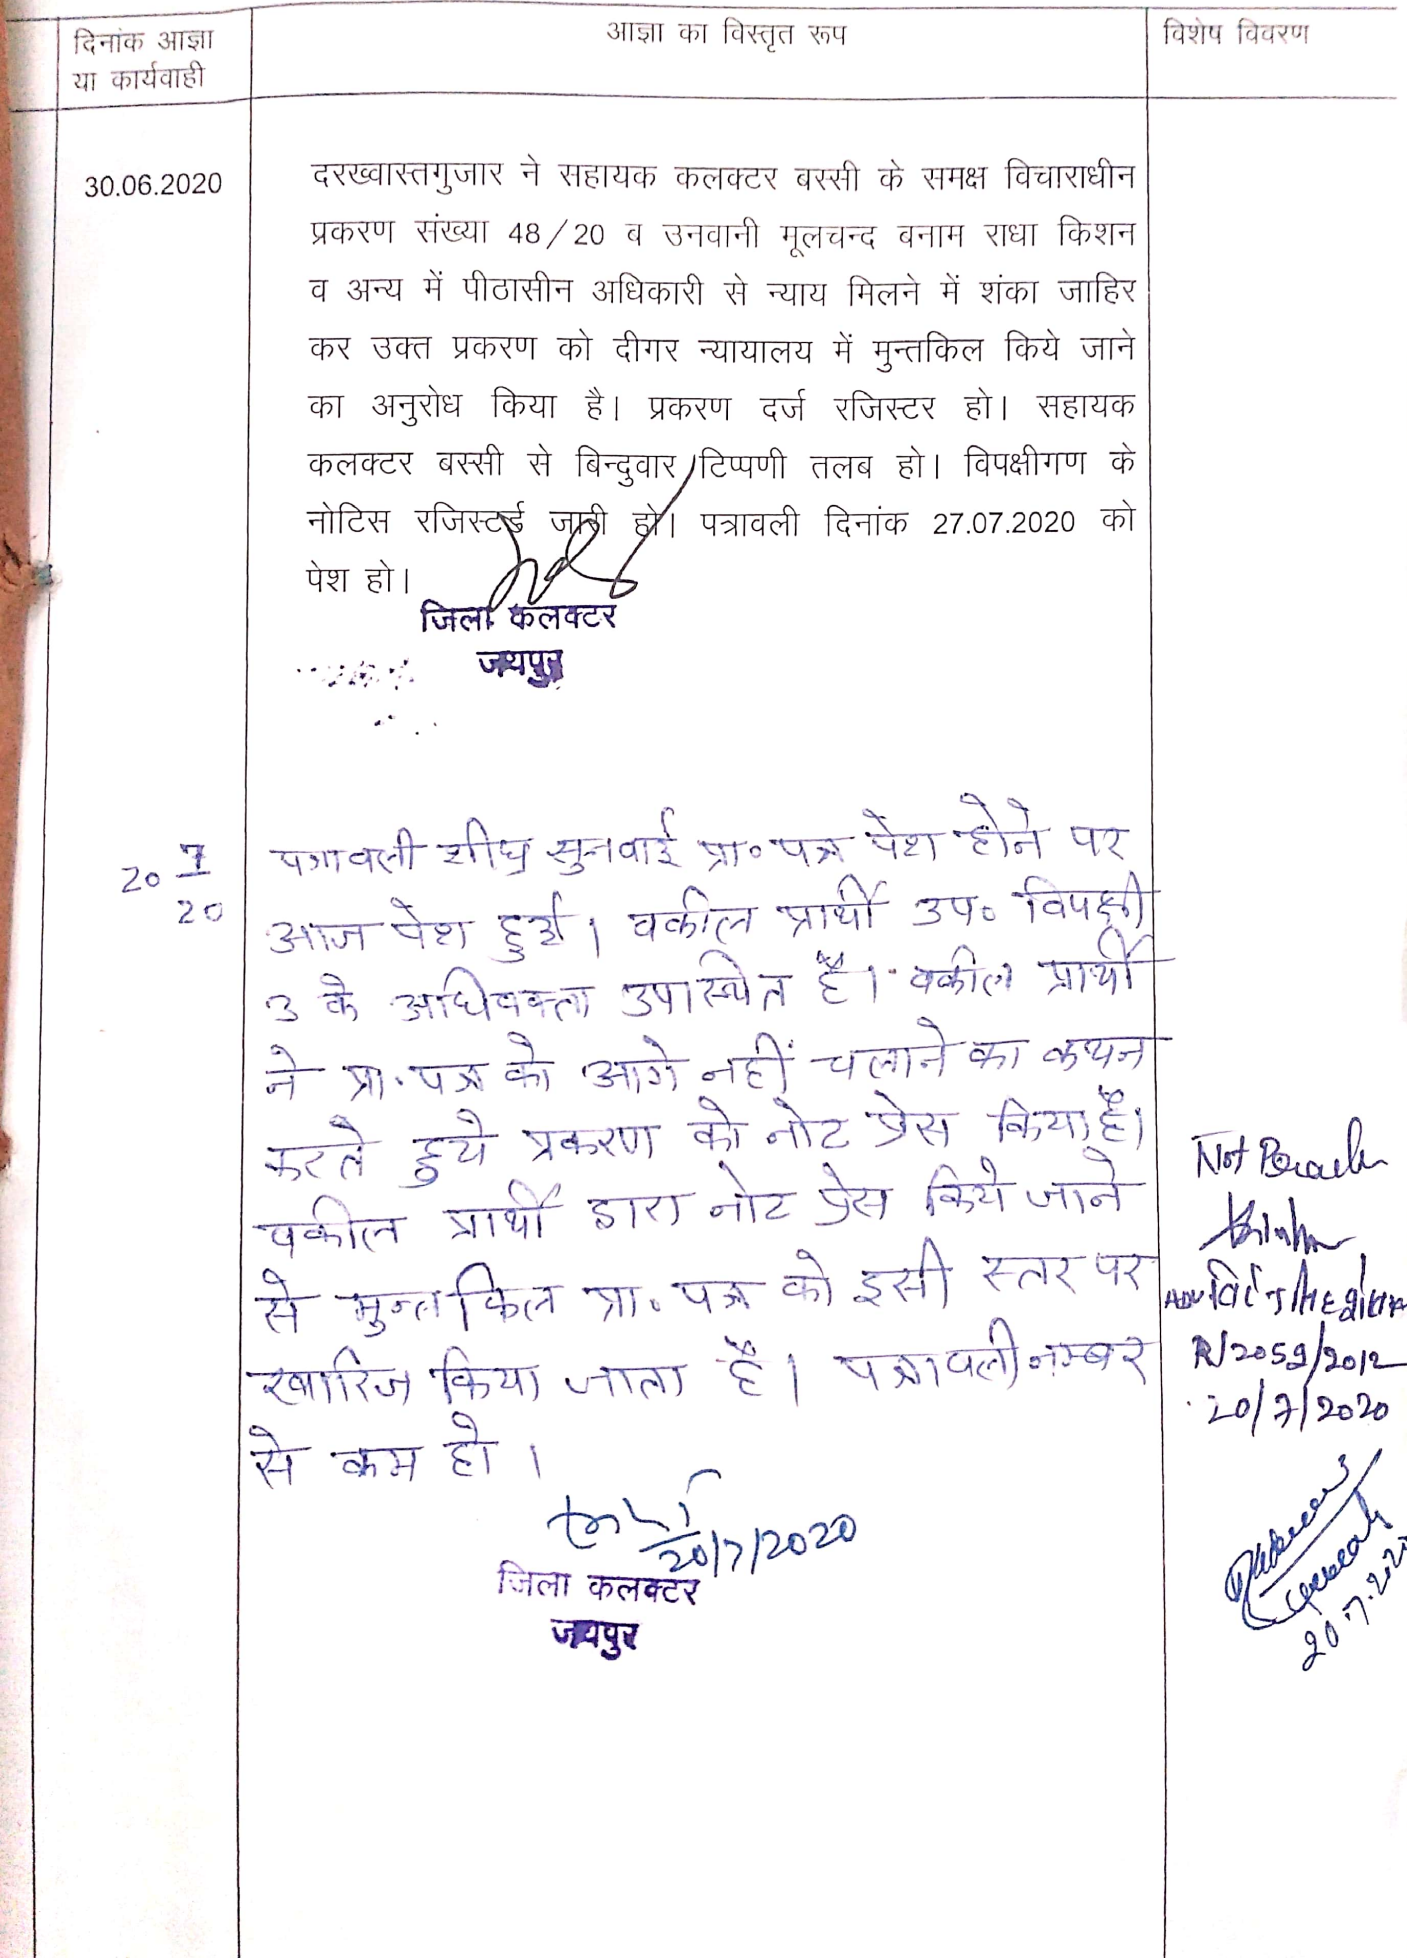 दिनांक आज्ञा
या कार्यवाही
आज्ञा का विस्तृत रूप
विशेष विवरण
30.06.2020
दरख्वास्तगुजार ने सहायक कलक्टर बस्सी के समक्ष विचाराधीन
प्रकरण संख्या 48/20 व उनवानी मूलचन्द बनाम राधा किशन
व अन्य में पीठासीन अधिकारी से न्याय मिलने में शंका जाहिर
कर उक्त प्रकरण को दीगर न्यायालय में मुन्तकिल किये जाने
का अनुरोध किया है। प्रकरण दर्ज रजिस्टर हो। सहायक
कलक्टर बस्सी से बिन्दुवार टिप्पणी तलब हो। विपक्षीगण के
नोटिस रजिस्टर्ड जारी हो। पत्रावली दिनांक 27.07.2020 को
पेश हो।
जिला कलक्टर
जयपुर
20 7/20
पत्रावली शीघ्र सुनवाई प्रा० पत्र पेश होने पर
आज पेश हुई। वकील प्रार्थी उप० विपक्षी
3 के अधिवक्ता उपस्थित है। वकील प्रार्थी
ने प्रा. पत्र को आगे नहीं चलाने का कथन
करते हुये प्रकरण को नोट प्रेस किया है।
वकील प्रार्थी द्वारा नोट प्रेस किये जाने
से मुन्तकिल प्रा. पत्र को इसी स्तर पर
खारिज किया जाता है। पत्रावली नम्बर
से कम हो।
20/7/2020
जिला कलक्टर
जयपुर
Not
R/2059/2012
20/7/2020
20.7.202